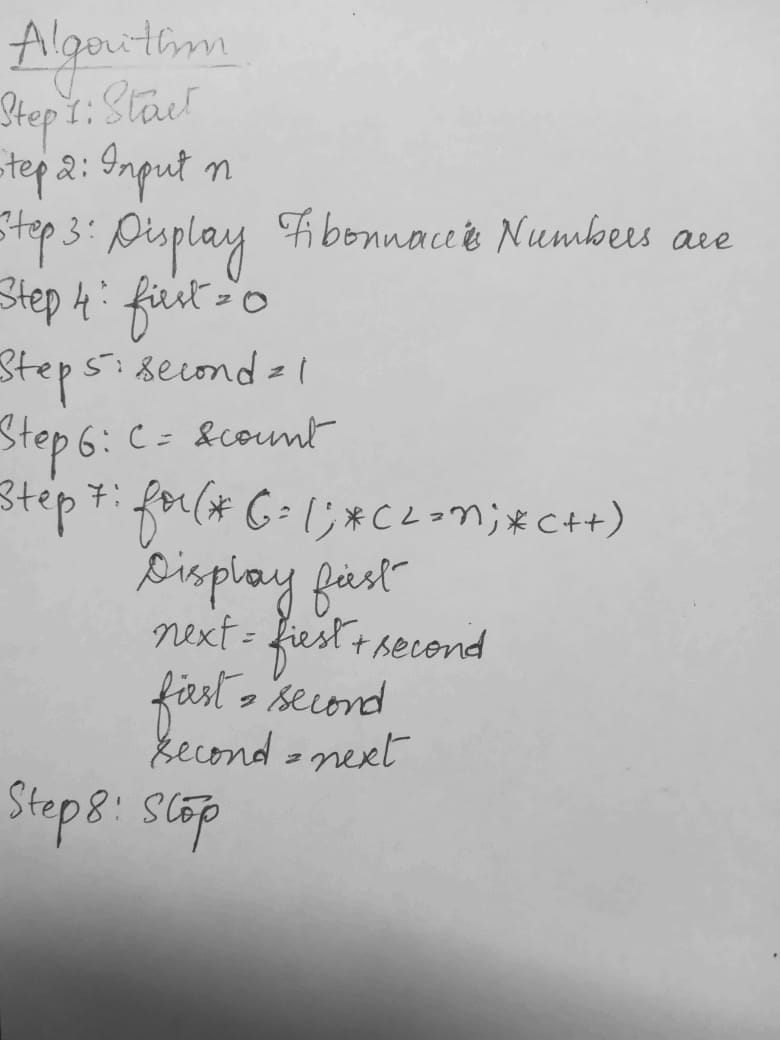 Algorithm
Step 1: Start
Step 2: Input n
Step 3: Display Fibonnacci Numbers are
Step 4: first = 0
Step 5: second = 1
Step 6: C = &count
Step 7: for(* C = 1; *C <= n; *C++)
Display first
next = first + second
first = second
second = next
Step 8: Stop